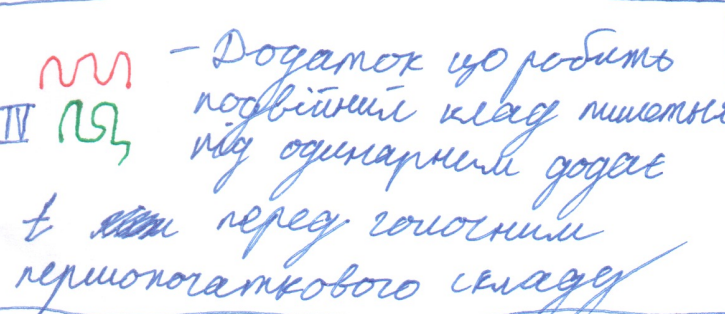 - Додаток що робить
IV подвійний клад пишеться
під одинарним додає
t перед голосним
першопочаткового складу